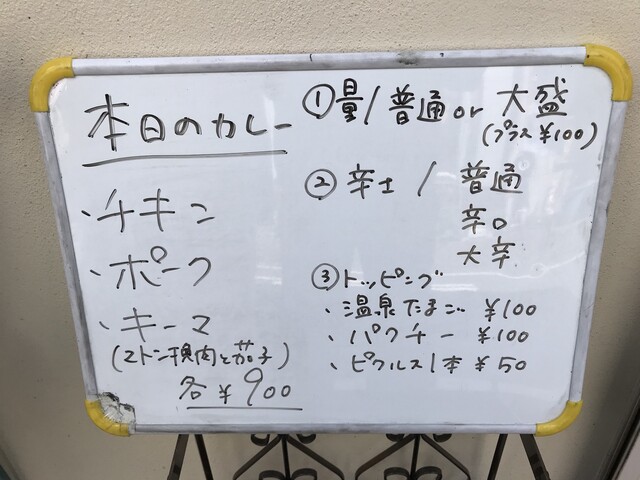 本日のカレー
・チキン
・ポーク
・キーマ
(マトン挽肉と茄子)
各¥900
①量/普通or大盛
(プラス¥100)
②辛さ/普通
辛口
大辛
③トッピング
・温泉たまご ¥100
・パクチー ¥100
・ピクルス1本 ¥50